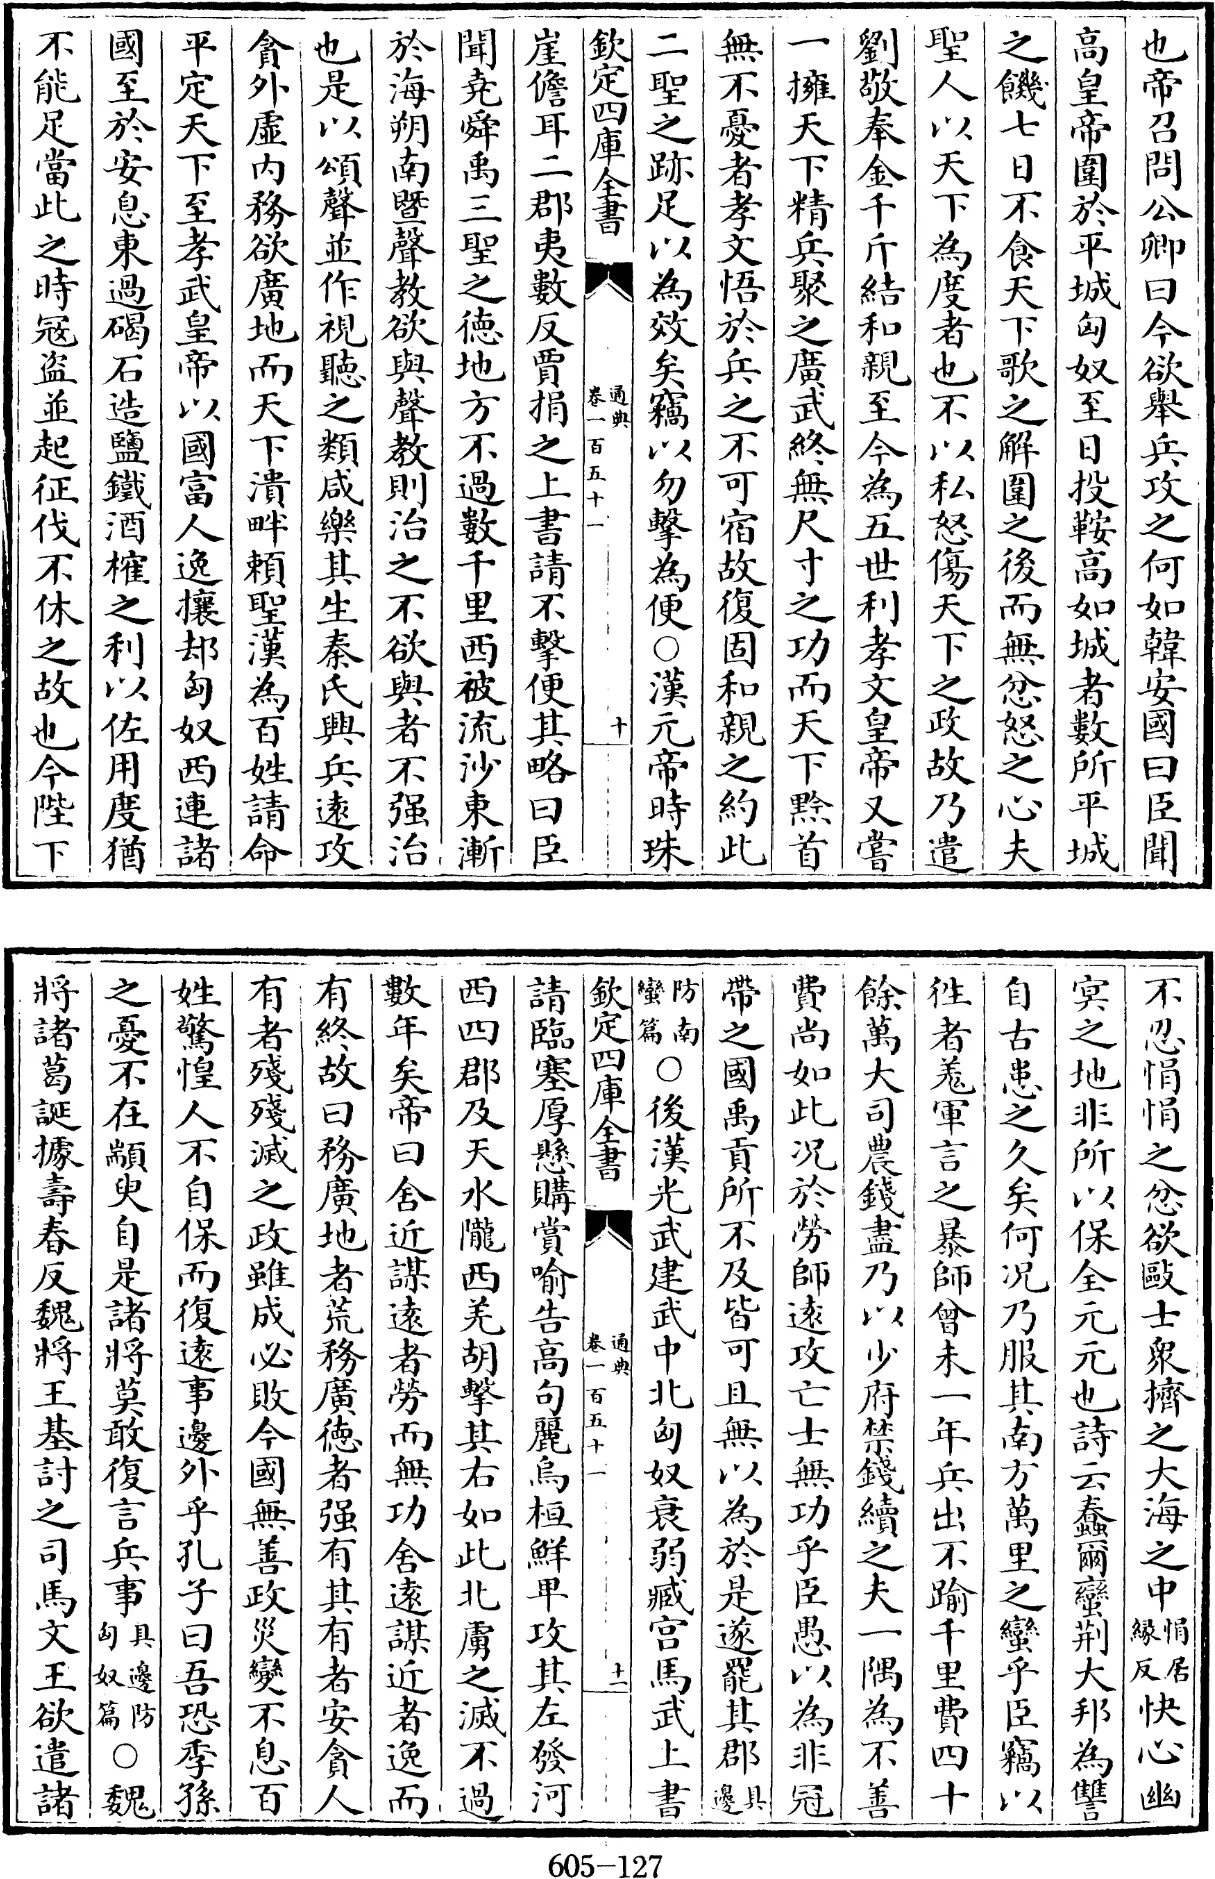 也帝召問公卿曰今欲舉兵攻之何如韓安國曰臣聞
高皇帝圍於平城匈奴至日投鞍高如城者數所平城
之饑七日不食天下歌之解圍之後而無忿怒之心夫
聖人以天下為度者也不以私怒傷天下之政故乃遣
劉敬奉金千斤結和親至今為五世利孝文皇帝又嘗
一擁天下精兵聚之廣武終無尺寸之功而天下黔首
無不憂者孝文悟於兵之不可宿故復固和親之約此
二聖之跡足以為效矣竊以勿擊為便○漢元帝時珠
欽定四庫全書
通典
卷一百五十一
十
崖儋耳二郡夷數反賈捐之上書請不擊便其略曰臣
聞堯舜禹三聖之德地方不過數千里西被流沙東漸
於海朔南暨聲教欲與聲教則治之不欲與者不强治
也是以頌聲並作視聽之類咸樂其生秦氏興兵遠攻
貪外虛內務欲廣地而天下潰畔賴聖漢為百姓請命
平定天下至孝武皇帝以國富人逸攘却匈奴西連諸
國至於安息東過碣石造鹽鐵酒榷之利以佐用度猶
不能足當此之時寇盜並起征伐不休之故也今陛下
不忍悁悁之忿欲敺士衆擠之大海之中悁居緣反快心幽
冥之地非所以保全元元也詩云蠢爾蠻荆大邦為讐
自古患之久矣何况乃服其南方萬里之蠻乎臣竊以
徃者羗軍言之暴師曾未一年兵出不踰千里費四十
餘萬大司農錢盡乃以少府禁錢續之夫一隅為不善
費尚如此况於勞師遠攻亡士無功乎臣愚以為非冠
帶之國禹貢所不及皆可且無以為於是遂罷其郡具邊
防南蠻篇○後漢光武建武中北匈奴衰弱臧宮馬武上書
欽定四庫全書
通典
卷一百五十一
十一
請臨塞厚懸購賞喻告高句麗烏桓鮮卑攻其左發河
西四郡及天水隴西羌胡擊其右如此北虜之滅不過
數年矣帝曰舍近謀遠者勞而無功舍遠謀近者逸而
有終故曰務廣地者荒務廣德者强有其有者安貪人
有者殘殘滅之政雖成必敗今國無善政災變不息百
姓驚惶人不自保而復遠事邊外乎孔子曰吾恐季孫
之憂不在顓臾自是諸將莫敢復言兵事具邊防匈奴篇○魏
將諸葛誕據壽春反魏將王基討之司馬文王欲遣諸
605-127